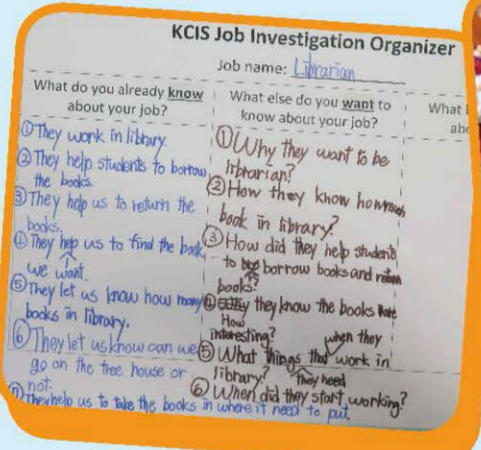 KCIS Job Investigation Organizer
Job name: Librarian
What do you already know
about your job?
① They work in library.
② They help students to borrow
the books.
③ They help us to return the
books.
④ They help us to find the book
we want.
⑤ They let us know how many
books in library.
⑥ They let us know can we
go on the tree house or
not.
They help us to take the books in where it need to put.
What else do you want to
know about your job?
① Why they want to be
librarian?
② How they know how much
book in library?
③ How did they help students
to borrow books and return
books?
④ How they know the books
interesting?
⑤ What things they need when they work in
library?
⑥ When did they start working?
What